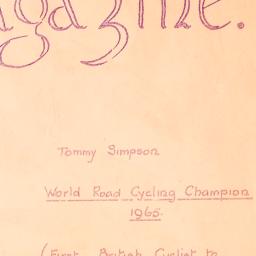 agazine.
Tommy Simpson
World Road Cycling Champion
1965.
(First British Cyclist to